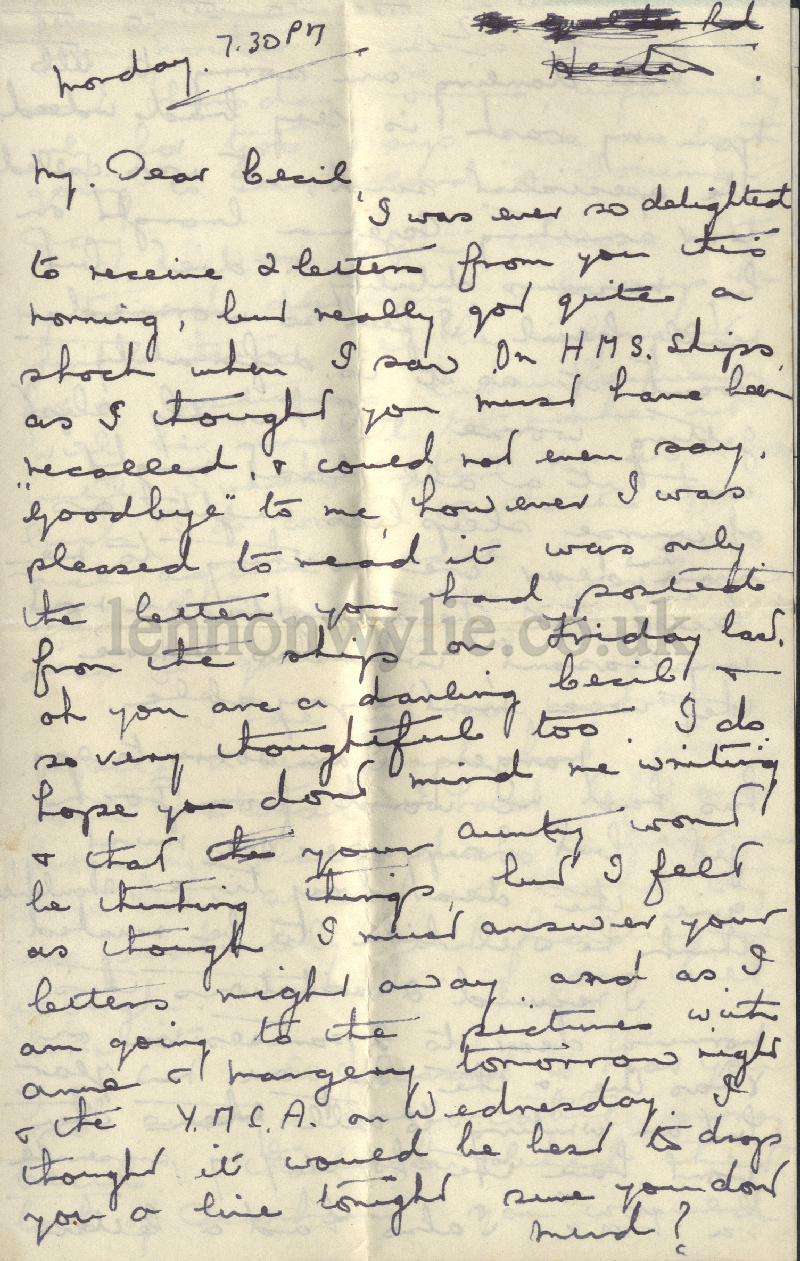 Rd
Heaton.
Monday. 7.30PM
My. Dear Cecil,
I was ever so delighted
to receive 2 letters from you this
morning, but really got quite a
shock when I saw On H M S. Ships,
as I thought you must have been
recalled, & could not even say,
"goodbye" to me, however I was
pleased to read it was only
the letter you had posted
from the ships on Friday last.
oh you are a darling Cecil &
so very thoughtful too. I do
hope you dont mind me writing
& that the your aunty wont
be thinking things, but I felt
as though I must answer your
letters right away. and as I
am going to the pictures with
anne & Margery tomorrow night
& the Y.M.C.A. on Wednesday. I
thought it would be best to drop
you a line tonight sure you dont
mind?
lennonwylie.co.uk